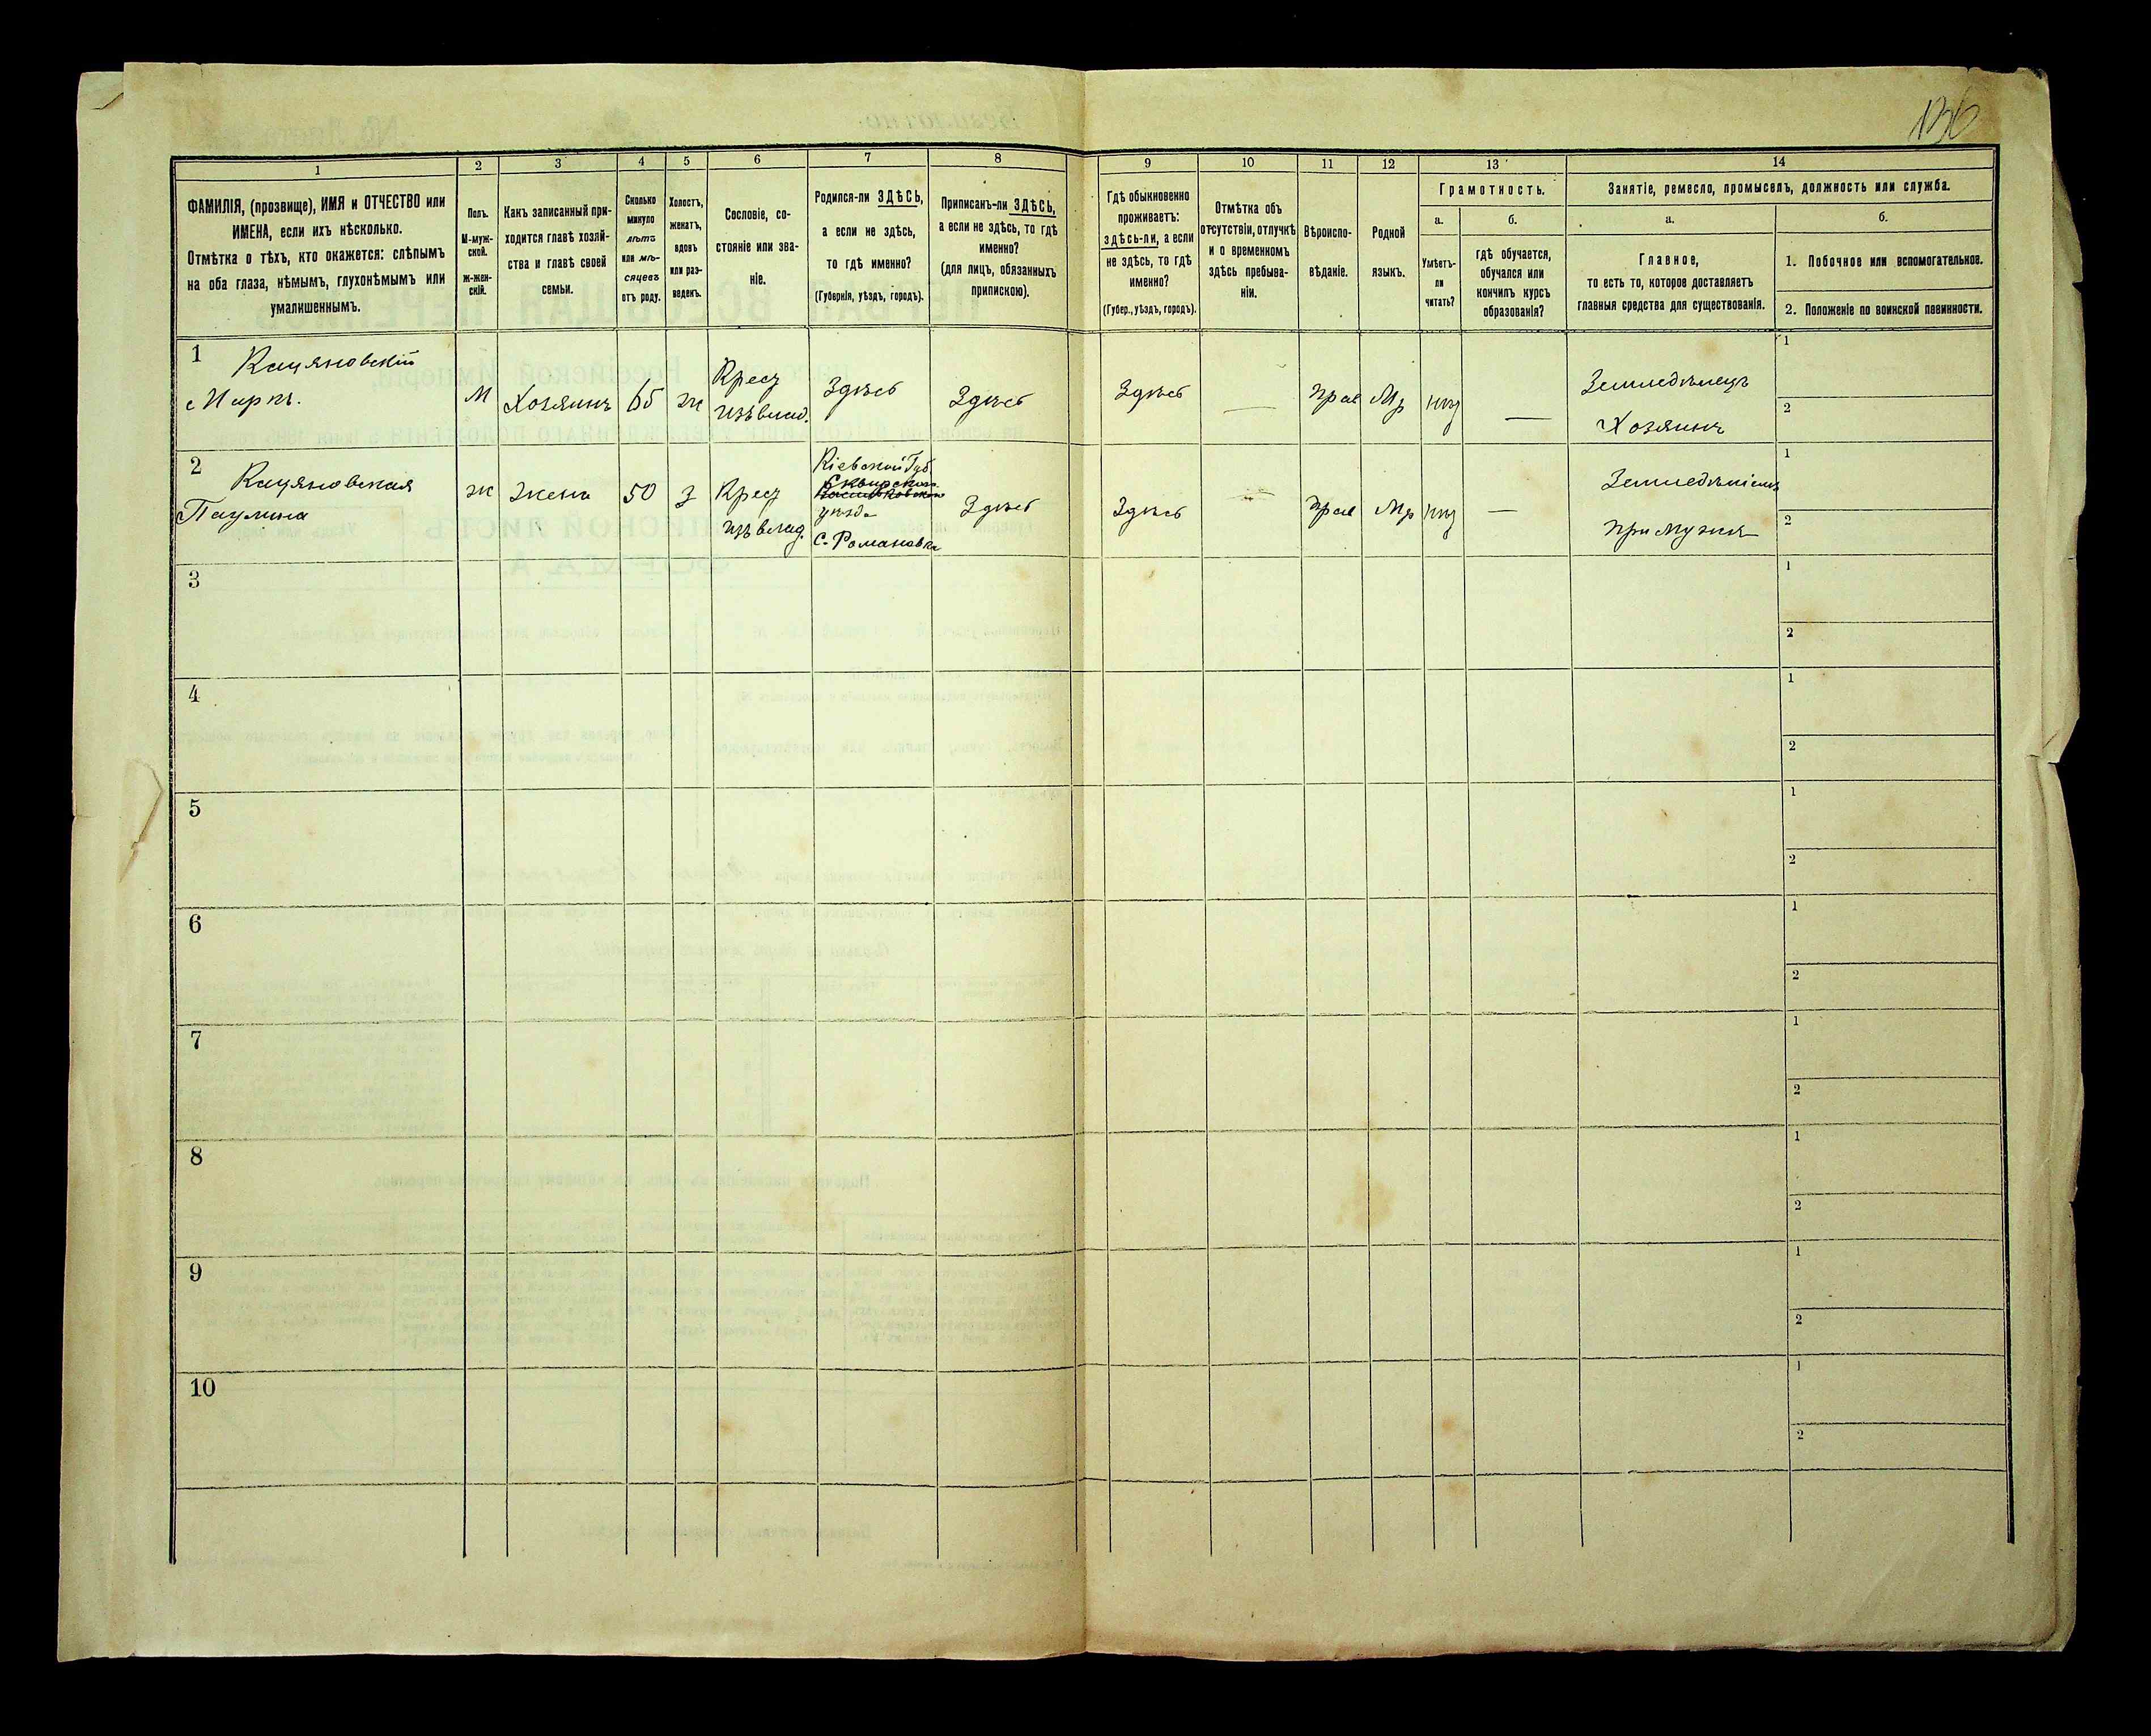 136
1 2 3 4 5 6 7 8 9 10 11 12 13 14
ФАМИЛІЯ, (прозвище), ИМЯ и ОТЧЕСТВО или
ИМЕНА, если ихъ нѣсколько.
Отмѣтка о тѣхъ, кто окажется: слѣпымъ
на оба глаза, нѣмымъ, глухонѣмымъ или
умалишеннымъ.
Полъ.
М-муж-
ской.
ж-жен-
скій.
Какъ записанный при-
ходится главѣ хозяй-
ства и главѣ своей
семьи.
Сколько
минуло
лѣтъ
или мѣ-
сяцевъ
отъ роду.
Холостъ,
женатъ,
вдовъ
или раз-
веденъ.
Сословіе, со-
стояніе или зва-
ніе.
Родился-ли ЗДѢСЬ,
а если не здѣсь,
то гдѣ именно?
(Губернія, уѣздъ, городъ).
Приписанъ-ли ЗДѢСЬ,
а если не здѣсь, то гдѣ
именно?
(для лицъ, обязанныхъ
припискою).
Гдѣ обыкновенно
проживаетъ:
здѣсь-ли, а если
не здѣсь, то гдѣ
именно?
(Губер., уѣздъ, городъ).
Отмѣтка объ
отсутствіи, отлучкѣ
и о временномъ
здѣсь пребыва-
ніи.
Вѣроиспо-
вѣданіе.
Родной
языкъ.
Грамотность.
а.
Умѣетъ-
ли
читать?
б.
гдѣ обучается,
обучался или
кончилъ курсъ
образованія?
Занятіе, ремесло, промыселъ, должность или служба.
а.
Главное,
то есть то, которое доставляетъ
главныя средства для существованія.
б.
1. Побочное или вспомогательное.
2. Положеніе по воинской повинности.
1 Кацяновскій
Маркъ.
М
Хозяинъ
65
ж
Крест
изъ влад.
Здѣсь
Здѣсь
Здѣсь
—
Прав
Мр
нт
—
Земледѣлецъ
Хозяинъ
1
2
2 Кацяновская
Паулина
ж
Жена
50
з
Крест
изъ влад.
Кіевской Губ.
Сквирского
Васильковского
уѣзда
С. Романовка
Здѣсь
Здѣсь
—
Прав
Мр
нт
—
Земледѣліемъ
при мужѣ
1
2
3
1
2
4
1
2
5
1
2
6
1
2
7
1
2
8
1
2
9
1
2
10
1
2